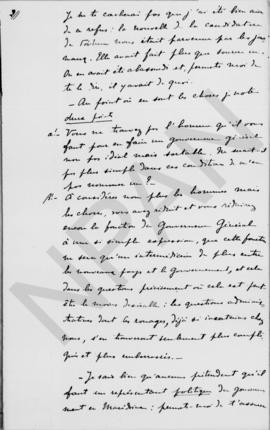 Je ne te cacherai pas que j'ai été bien aise
de ce refus: la nouvelle de la candidature
de nous était parvenue par les jour
naux. Elle avait fait plus que
On en avait été abasourdi et, permets moi de
te le dire, il y avait de quoi.
- Au point où en sont les choses je vois
deux points
a° - Vous ne trouvez pas l'homme qu'il vous
faut pour en faire un gouverneur général
non pas idéal mais sortable. Ne serait-il
pas plus simple dans ces conditions de n'en
pas nommer un?
B° - A considérer non plus les hommes mais
les choses, vous avez réduit et vous réduirez
encore la fonction de Gouverneur Général
à une si simple expression, que cette fonction
ne sera qu'un intermédiaire de plus entre
les nouveaux pays et le Gouvernement, et cela
dans les questions précisément où cela est peut
être le moins désirable: les questions adminis
tratives dont les rouages, déjà si chez
nous, s'en trouveront seulement plus compli
qués et plus embarrassés. -
- Je sais bien qu'aucuns prétendent qu'il
faut un représentant politique du gouverne
ment en Macédoine: permets-moi de t'assurer